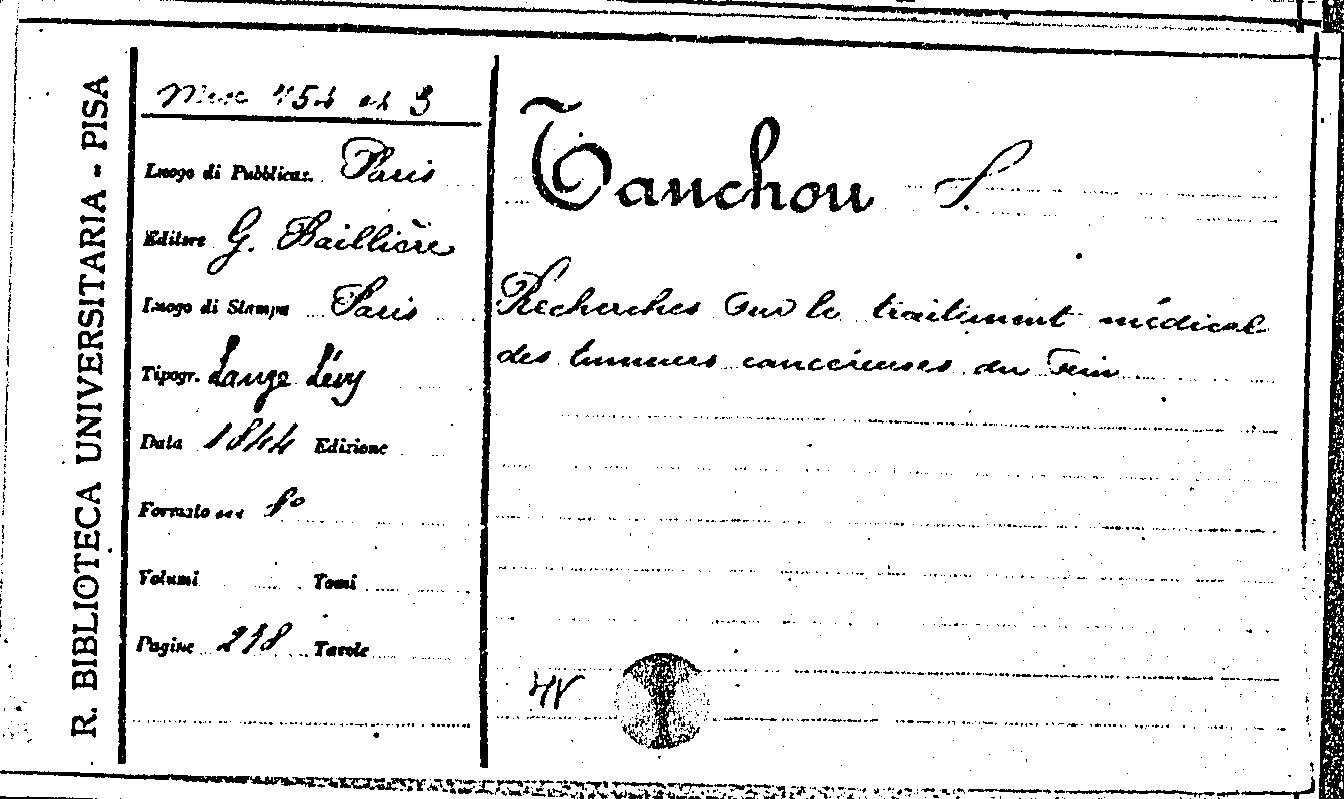 R. BIBLIOTECA UNIVERSITARIA - PISA
Misc 454 3
Luogo di Pubblicaz. Paris
Editore G. Baillière
Luogo di Stampa Paris
Tipogr. Lange Lévy
Data 1844 Edizione
Formato 8º
Volumi Tomi
Pagine 218 Tavole
Tanchou S.
Recherches sur le traitement médical
des tumeurs cancéreuses du sein